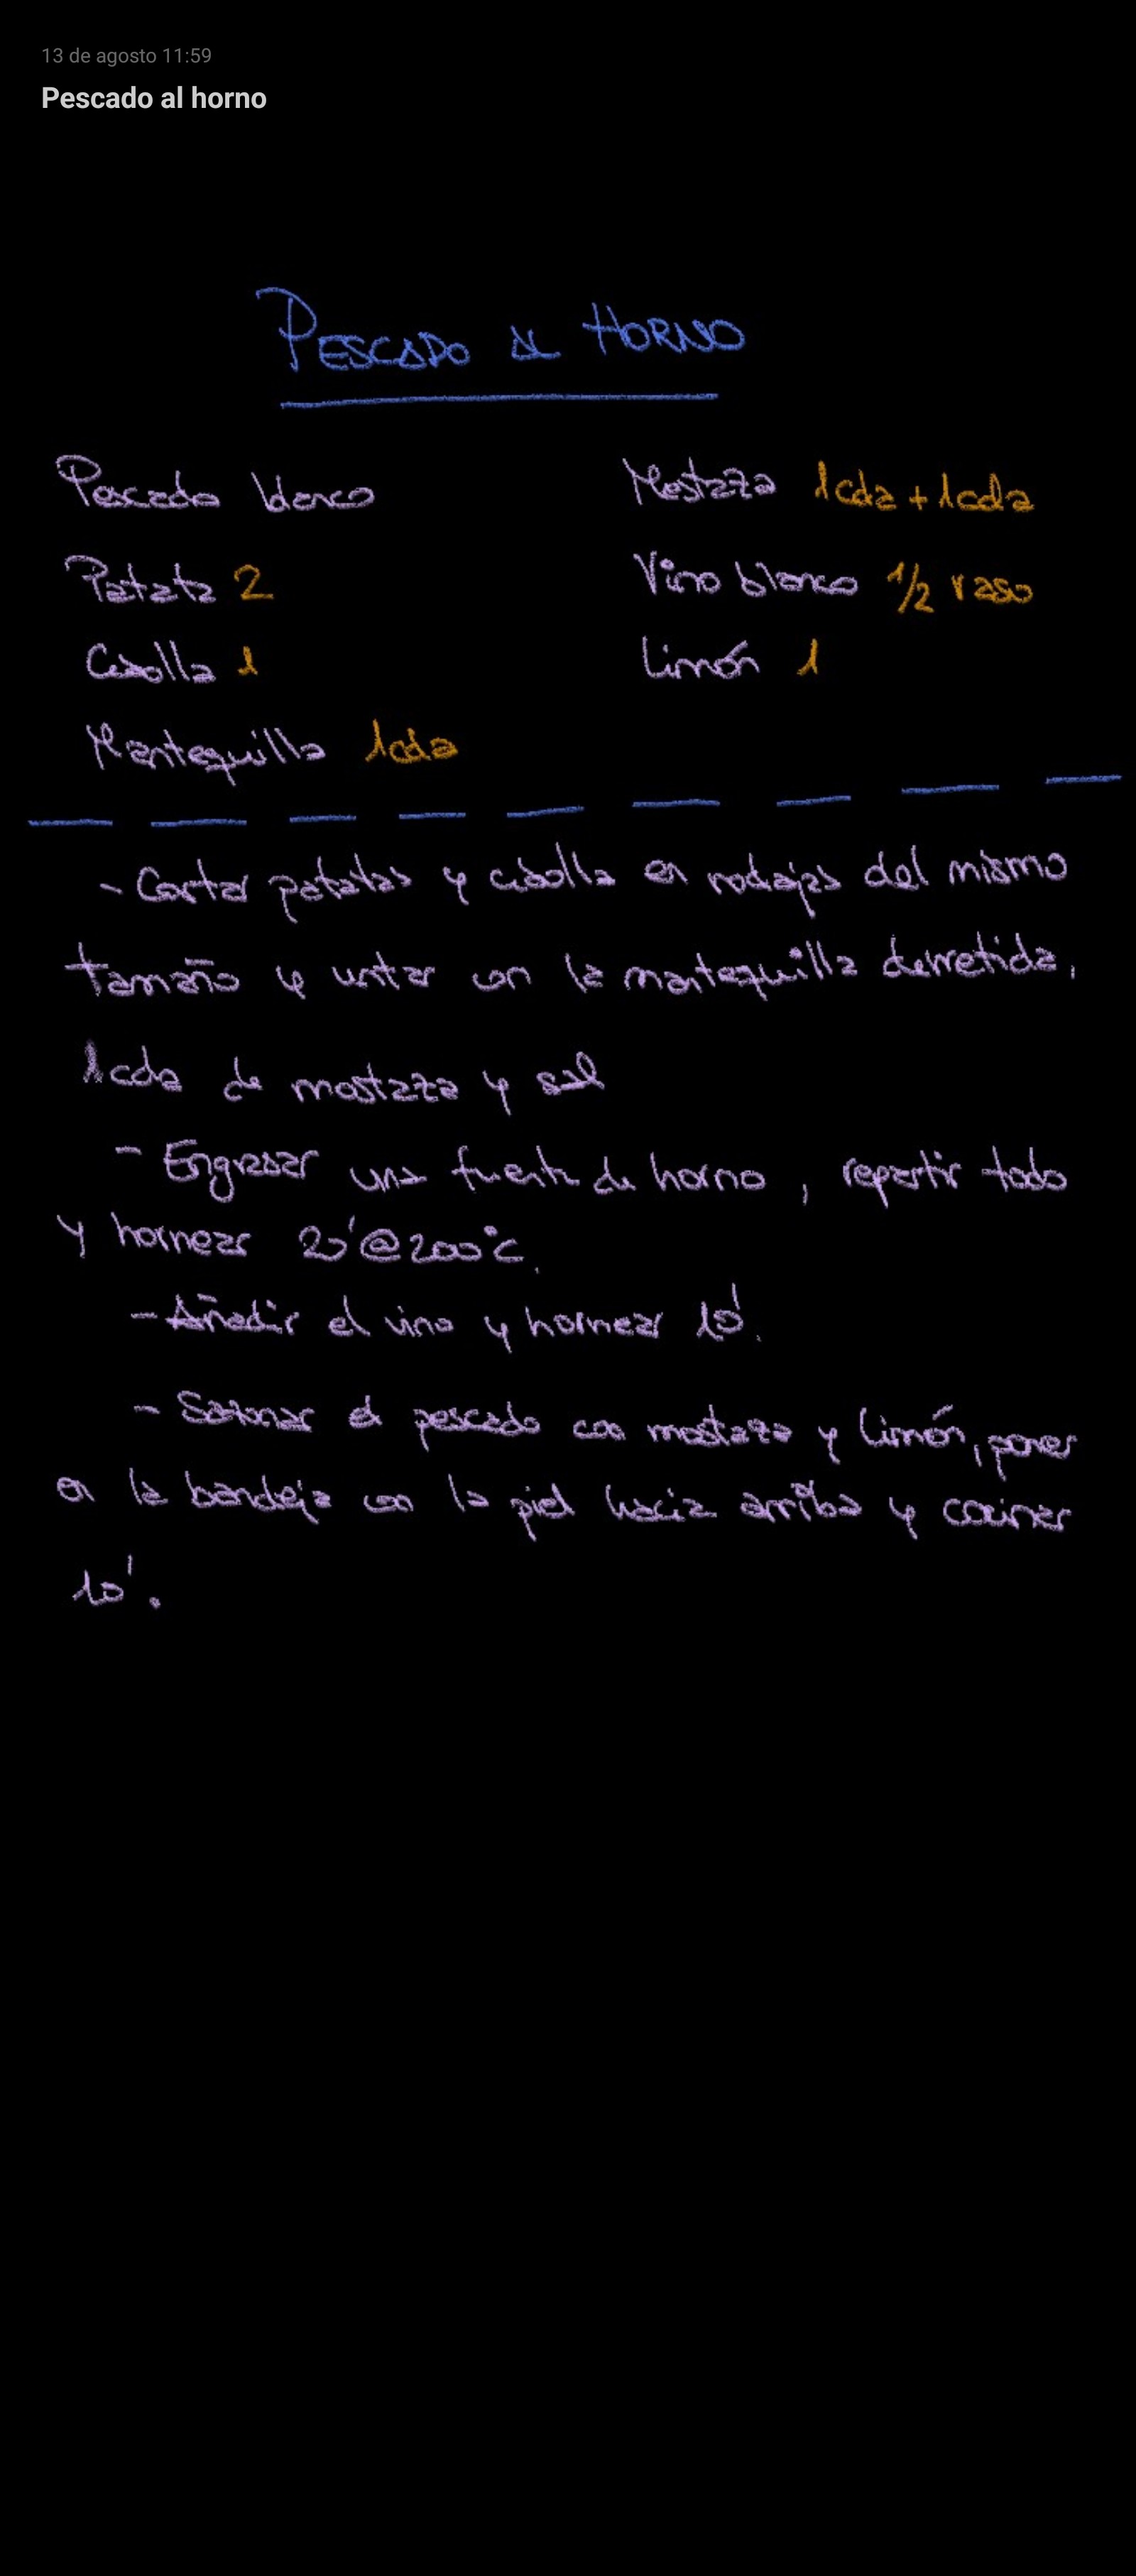 13 de agosto 11:59
Pescado al horno
PESCADO AL HORNO
Pescado blanco
Mostaza 1cda + 1cda
Patata 2
Vino blanco 1/2 vaso
Cebolla 1
Limón 1
Mantequilla 1cda
- Cortar patatas y cebolla en rodajas del mismo
tamaño y untar con la mantequilla derretida,
1 cda de mostaza y sal
- Engrasar una fuente de horno, repartir todo
y hornear 20'@200°C.
- Añadir el vino y hornear 10'.
- Sazonar el pescado con mostaza y limón, poner
en la bandeja con la piel hacia arriba y cocinar
10'.